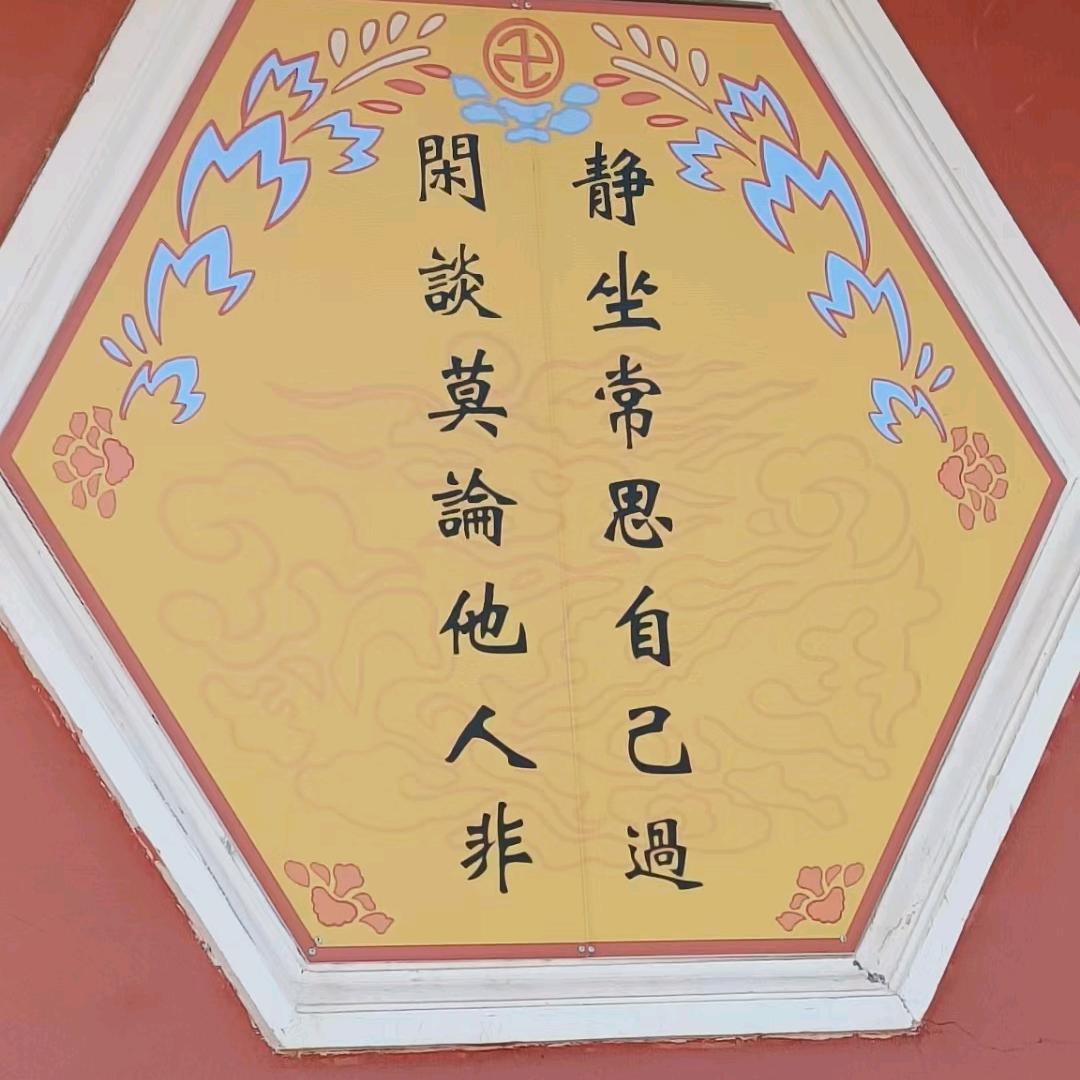 静坐常思自己過
閑談莫論他人非